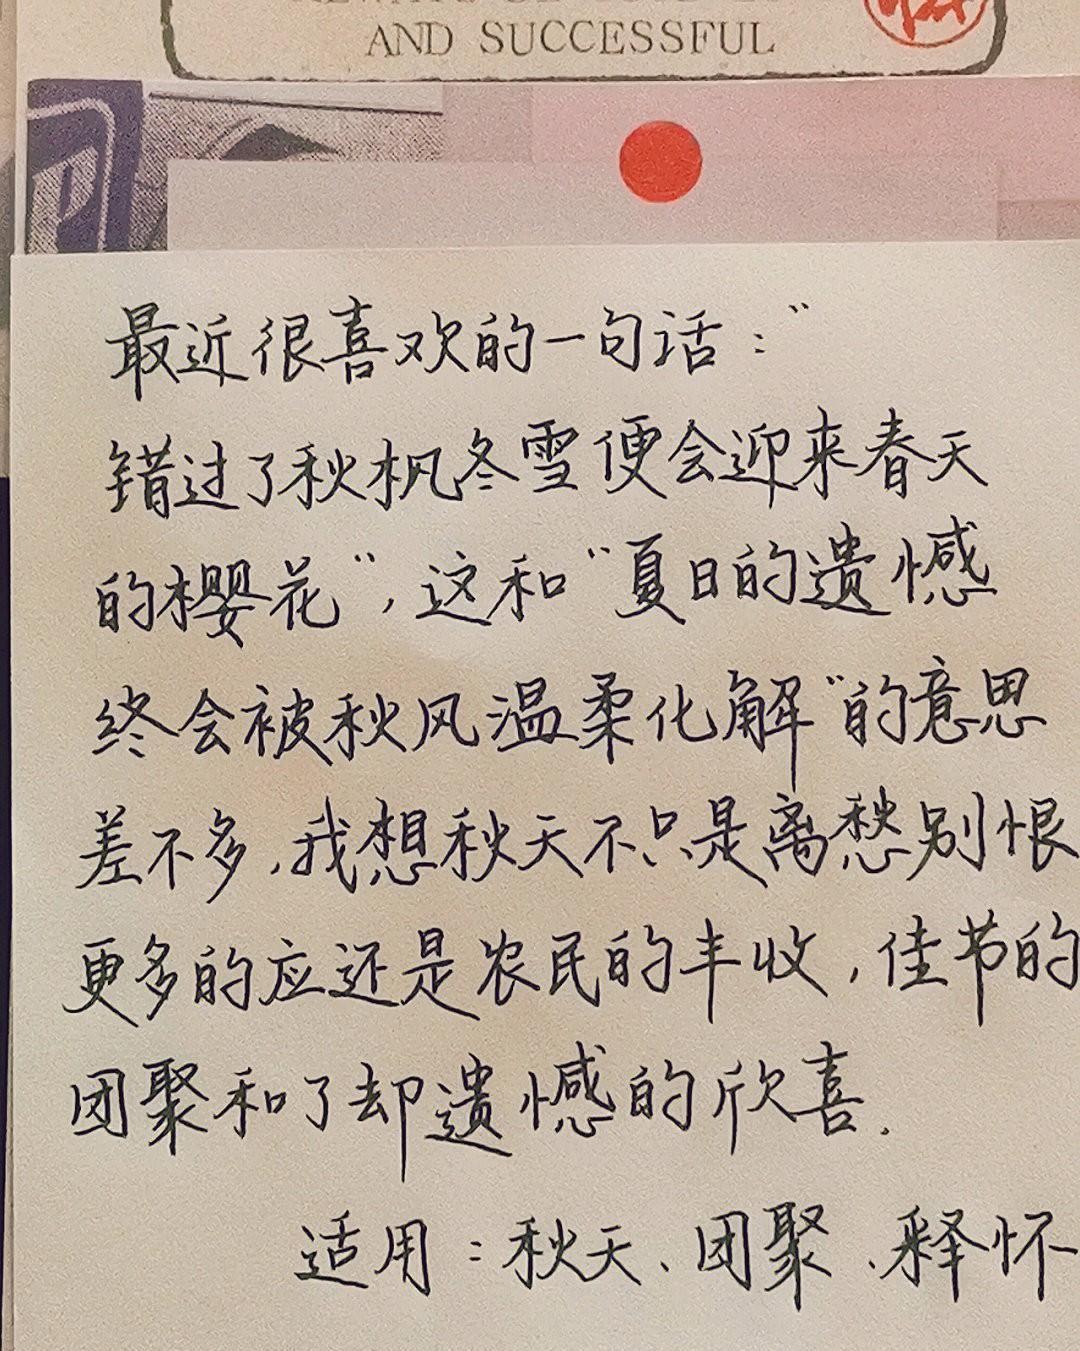 AND SUCCESSFUL
最近很喜欢的一句话：“
错过了秋枫冬雪便会迎来春天
的樱花”，这和“夏日的遗憾
终会被秋风温柔化解”的意思
差不多，我想秋天不只是离愁别恨
更多的应还是农民的丰收，佳节的
团聚和了却遗憾的欣喜.
适用：秋天、团聚、释怀